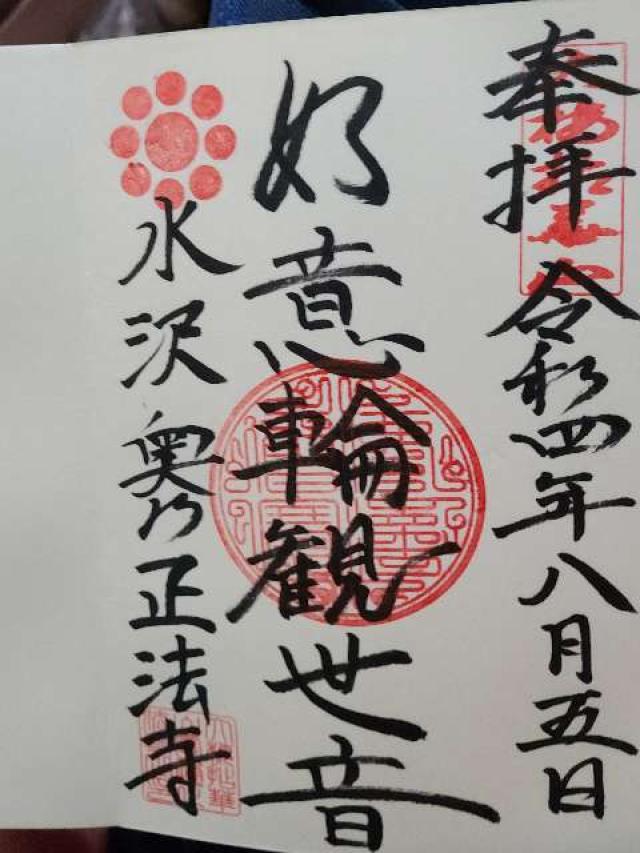 奉拝 令和四年八月五日
如意輪観世音
水沢 奥乃正法寺